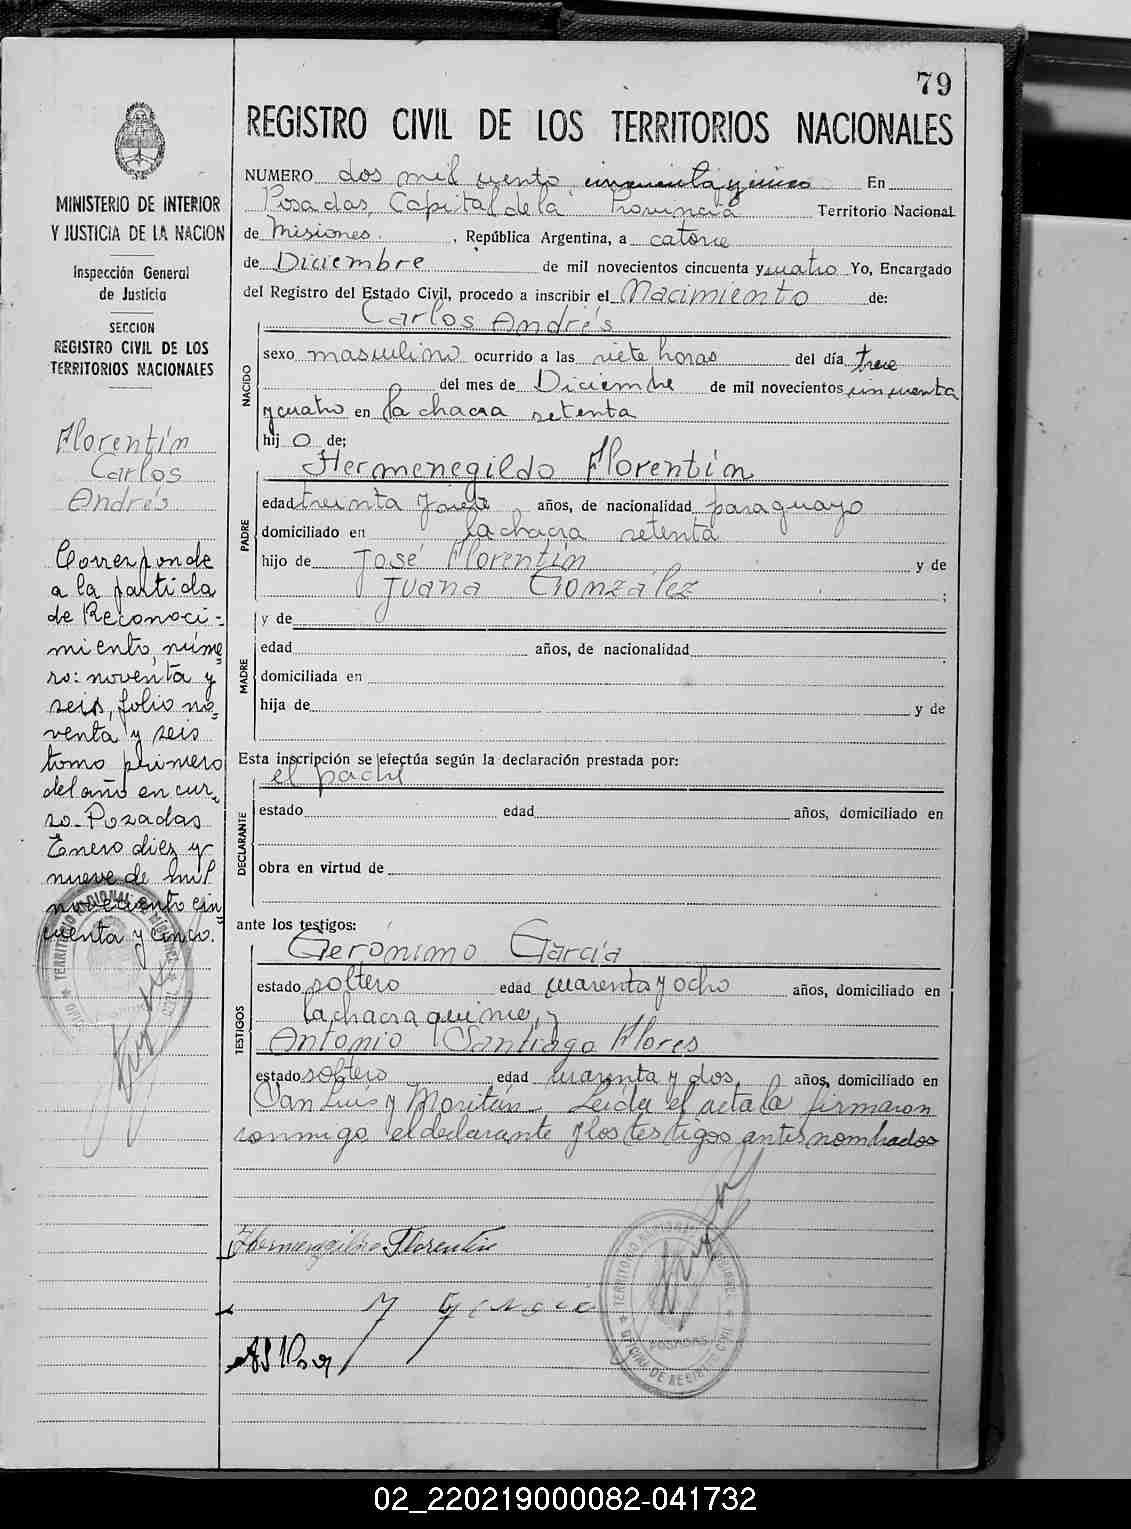 79
REGISTRO CIVIL DE LOS TERRITORIOS NACIONALES
MINISTERIO DE INTERIOR
Y JUSTICIA DE LA NACION
Inspección General
de Justicia
SECCION
REGISTRO CIVIL DE LOS
TERRITORIOS NACIONALES
Florentín
Carlos
Andrés
Corresponde
a la partida
de Reconoci-
miento, núme
ro: noventa y
seis, folio no-
venta y seis
tomo primero
del año en cur-
so. Posadas
Enero diez y
nueve de mil
noveciento cin
cuenta y cinco.
NUMERO dos mil ciento cincuenta y cinco En
Posadas, Capital de la Provincia Territorio Nacional
de Misiones. , República Argentina, a catorce
de Diciembre de mil novecientos cincuenta y cuatro Yo, Encargado
del Registro del Estado Civil, procedo a inscribir el Nacimiento de:
Carlos Andrés
NACIDO
sexo masculino ocurrido a las siete horas del día trece
del mes de Diciembre de mil novecientos cincuenta
y cuatro en la chacra setenta
hij o de;
Hermenegildo Florentín
PADRE
edad treinta y siete años, de nacionalidad paraguayo
domiciliado en la chacra setenta
hijo de José Florentín y de
Juana González ;
y de
MADRE
edad años, de nacionalidad
domiciliada en
hija de y de
Esta inscripción se efectúa según la declaración prestada por:
el padre
DECLARANTE
estado edad años, domiciliado en
obra en virtud de
ante los testigos:
Gerónimo García
TESTIGOS
estado soltero edad cuarenta y ocho años, domiciliado en
la chacra quince, y
Antonio Santiago Flores
estado soltero edad cuarenta y dos, años, domiciliado en
San Luis y Moritán. Leida el acta la firmaron
conmigo, el declarante y los testigos antes nombrados
Hermenegildo Florentin
POSADAS
02_220219000082-041732